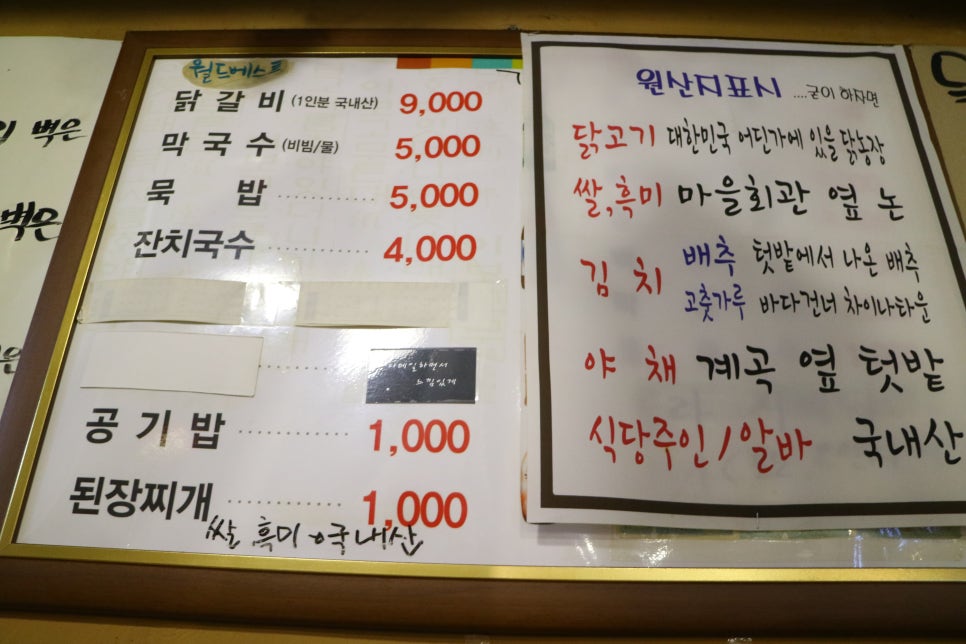 벽은
벽은
은
월드베스트
닭 갈 비 (1인분 국내산) 9,000
막 국 수 (비빔/물) 5,000
묵 밥 ............ 5,000
잔치국수 ............ 4,000
느낌있게
공 기 밥 ............ 1,000
된장찌개 ............ 1,000
쌀 흑미 국내산
원산지표시 ....굳이 하자면
닭고기 대한민국 어딘가에 있을 닭농장
쌀,흑미 마을회관 옆 논
김 치 배추 텃밭에서 나온 배추
고춧가루 바다건너 차이나타운
야 채 계곡 옆 텃밭
식당주인/알바 국내산